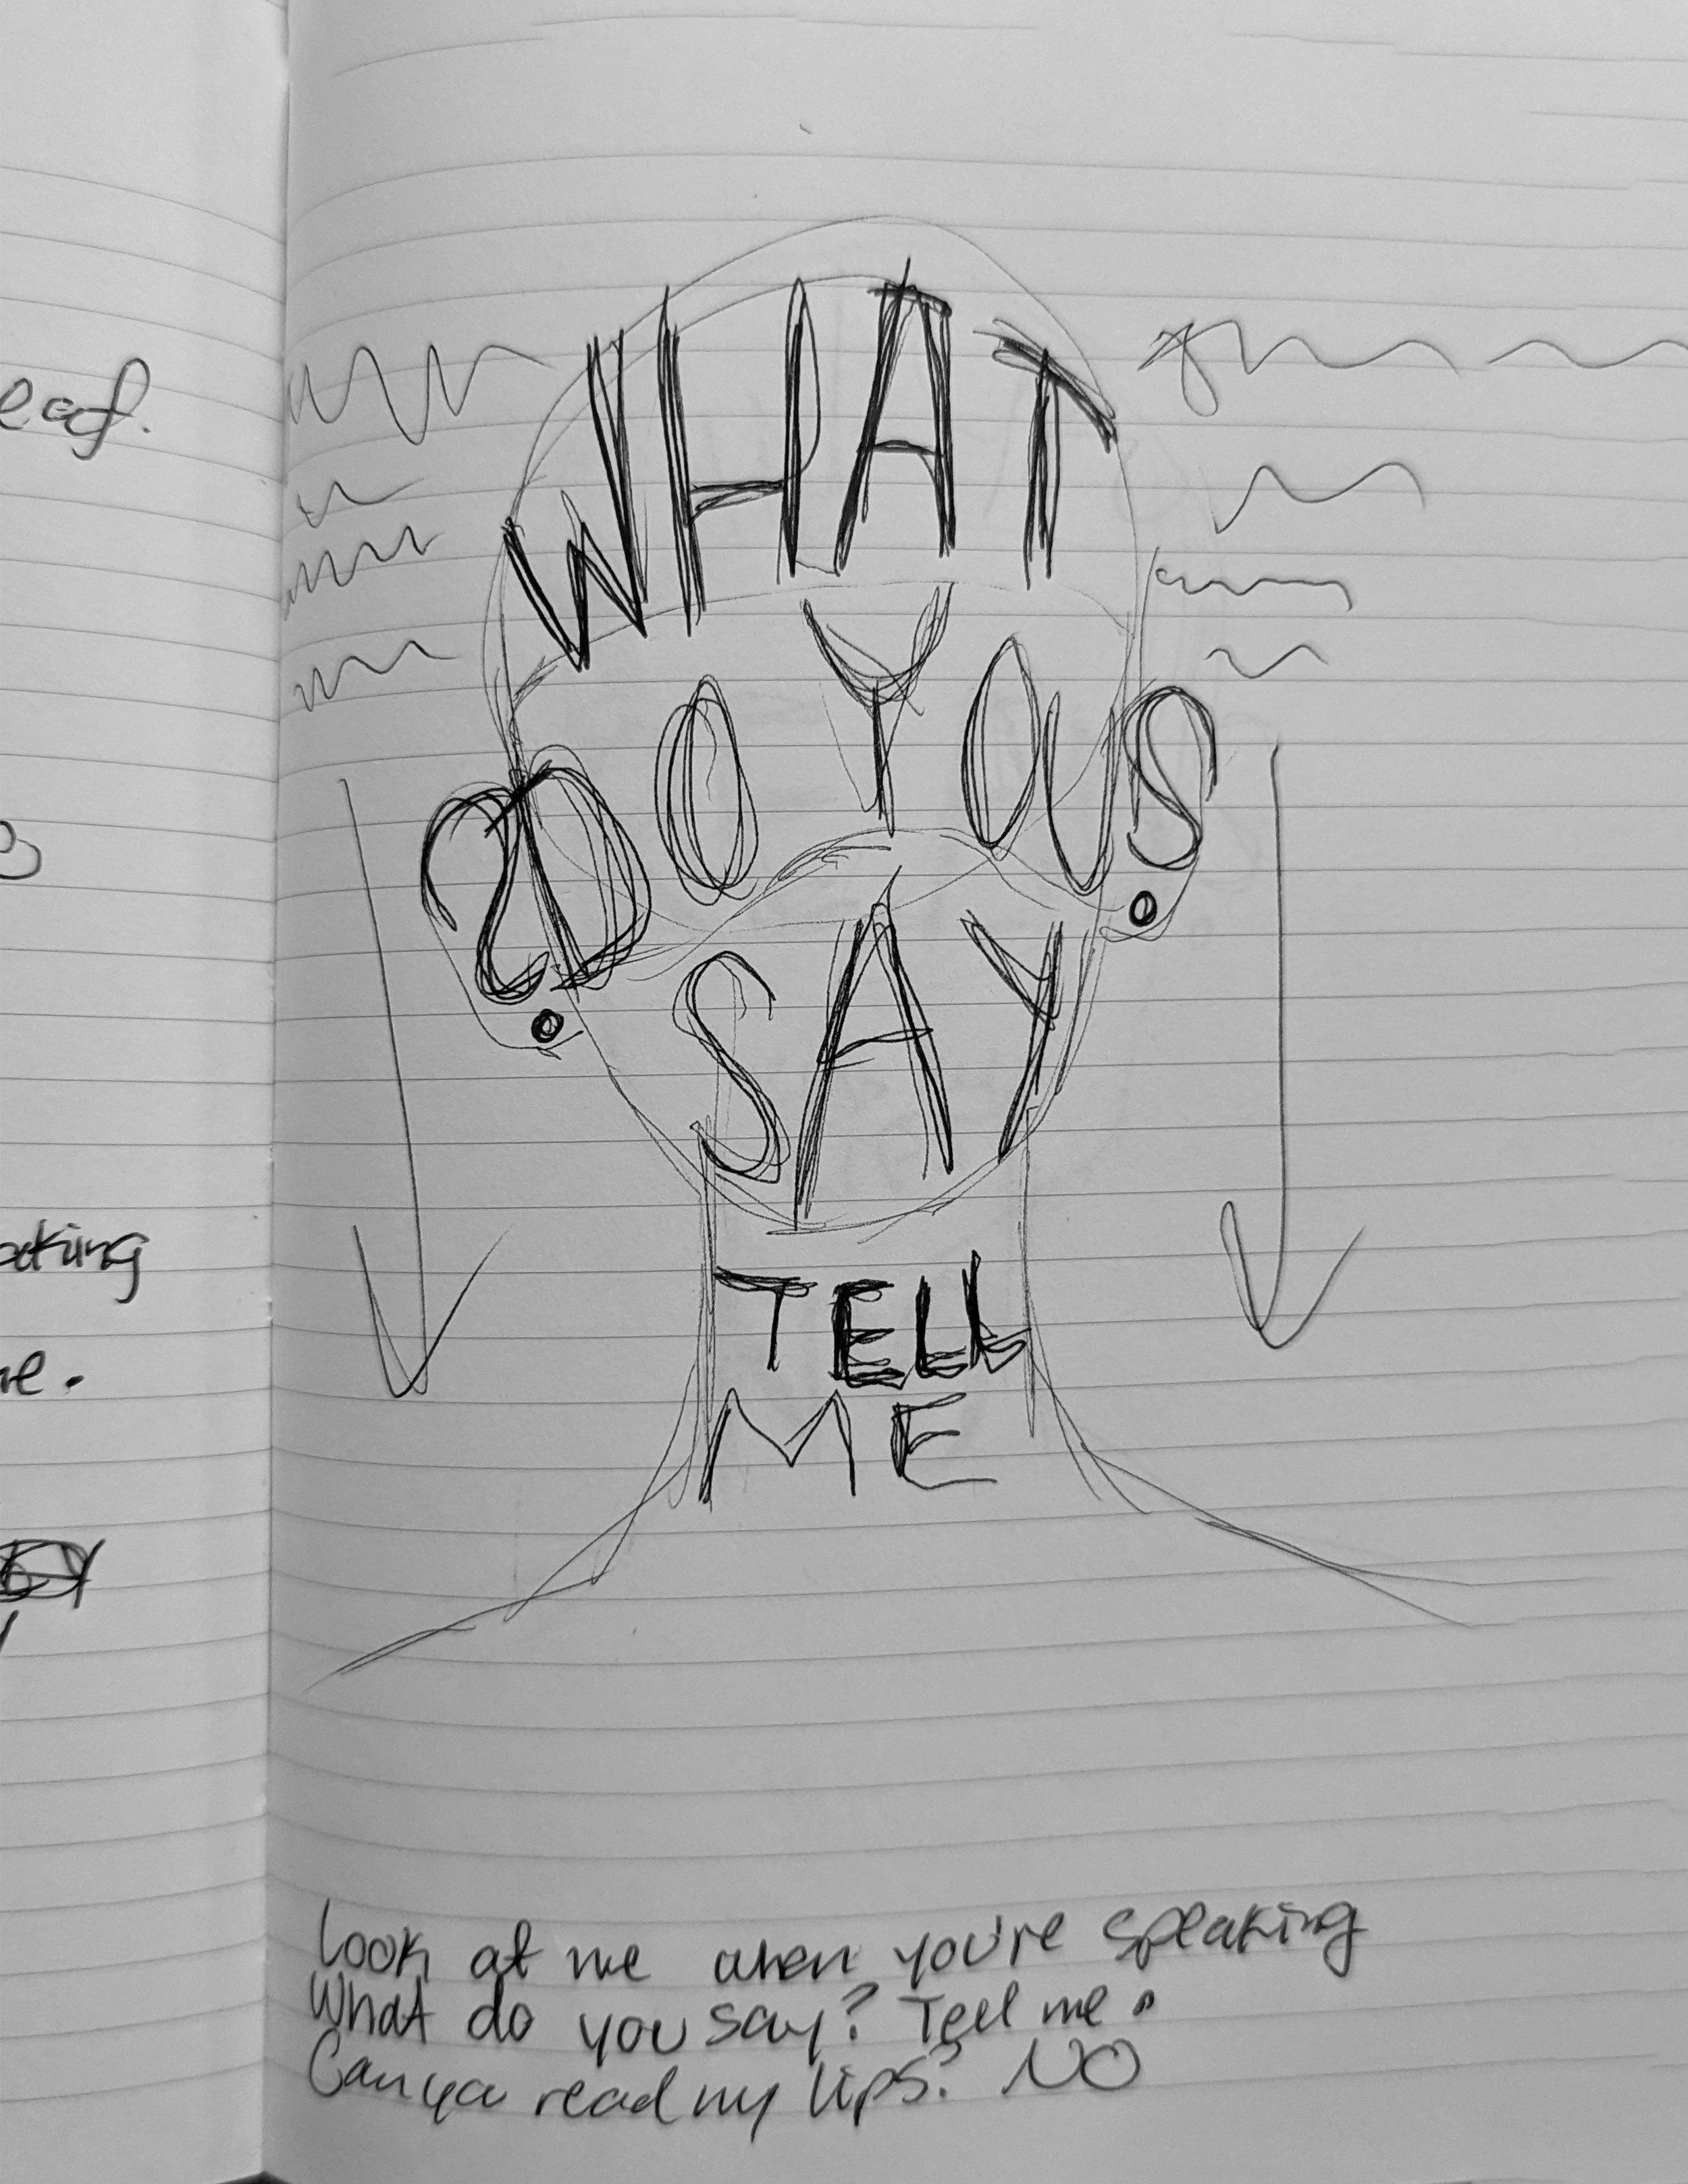 WHAT
DO YOU
SAY
TELL
ME
Look at me when you're speaking
What do you say? Tell me.
Can you read my lips? NO